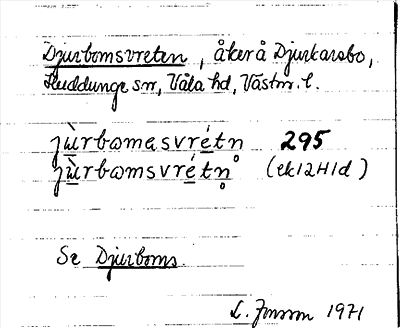 Djurbomsvreten, åker å Djurkarsbo,
Huddunge sn, Våla hd, Västm. l.
jùrbomasvrétn 295
jùrbomsvrétn̥ (ek12H1d)
Se Djurboms.
L. Jonsson 1971